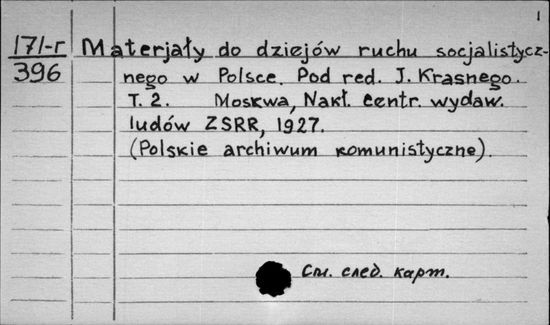 1
171-г
396
Materjały do dziejów ruchu socjalistycz-
nego w Polsce. Pod red. J. Krasnego.
T. 2. Moskwa, Nakł. centr. wydaw.
ludów ZSRR, 1927.
(Polskie archiwum komunistyczne).
См. след. карт.